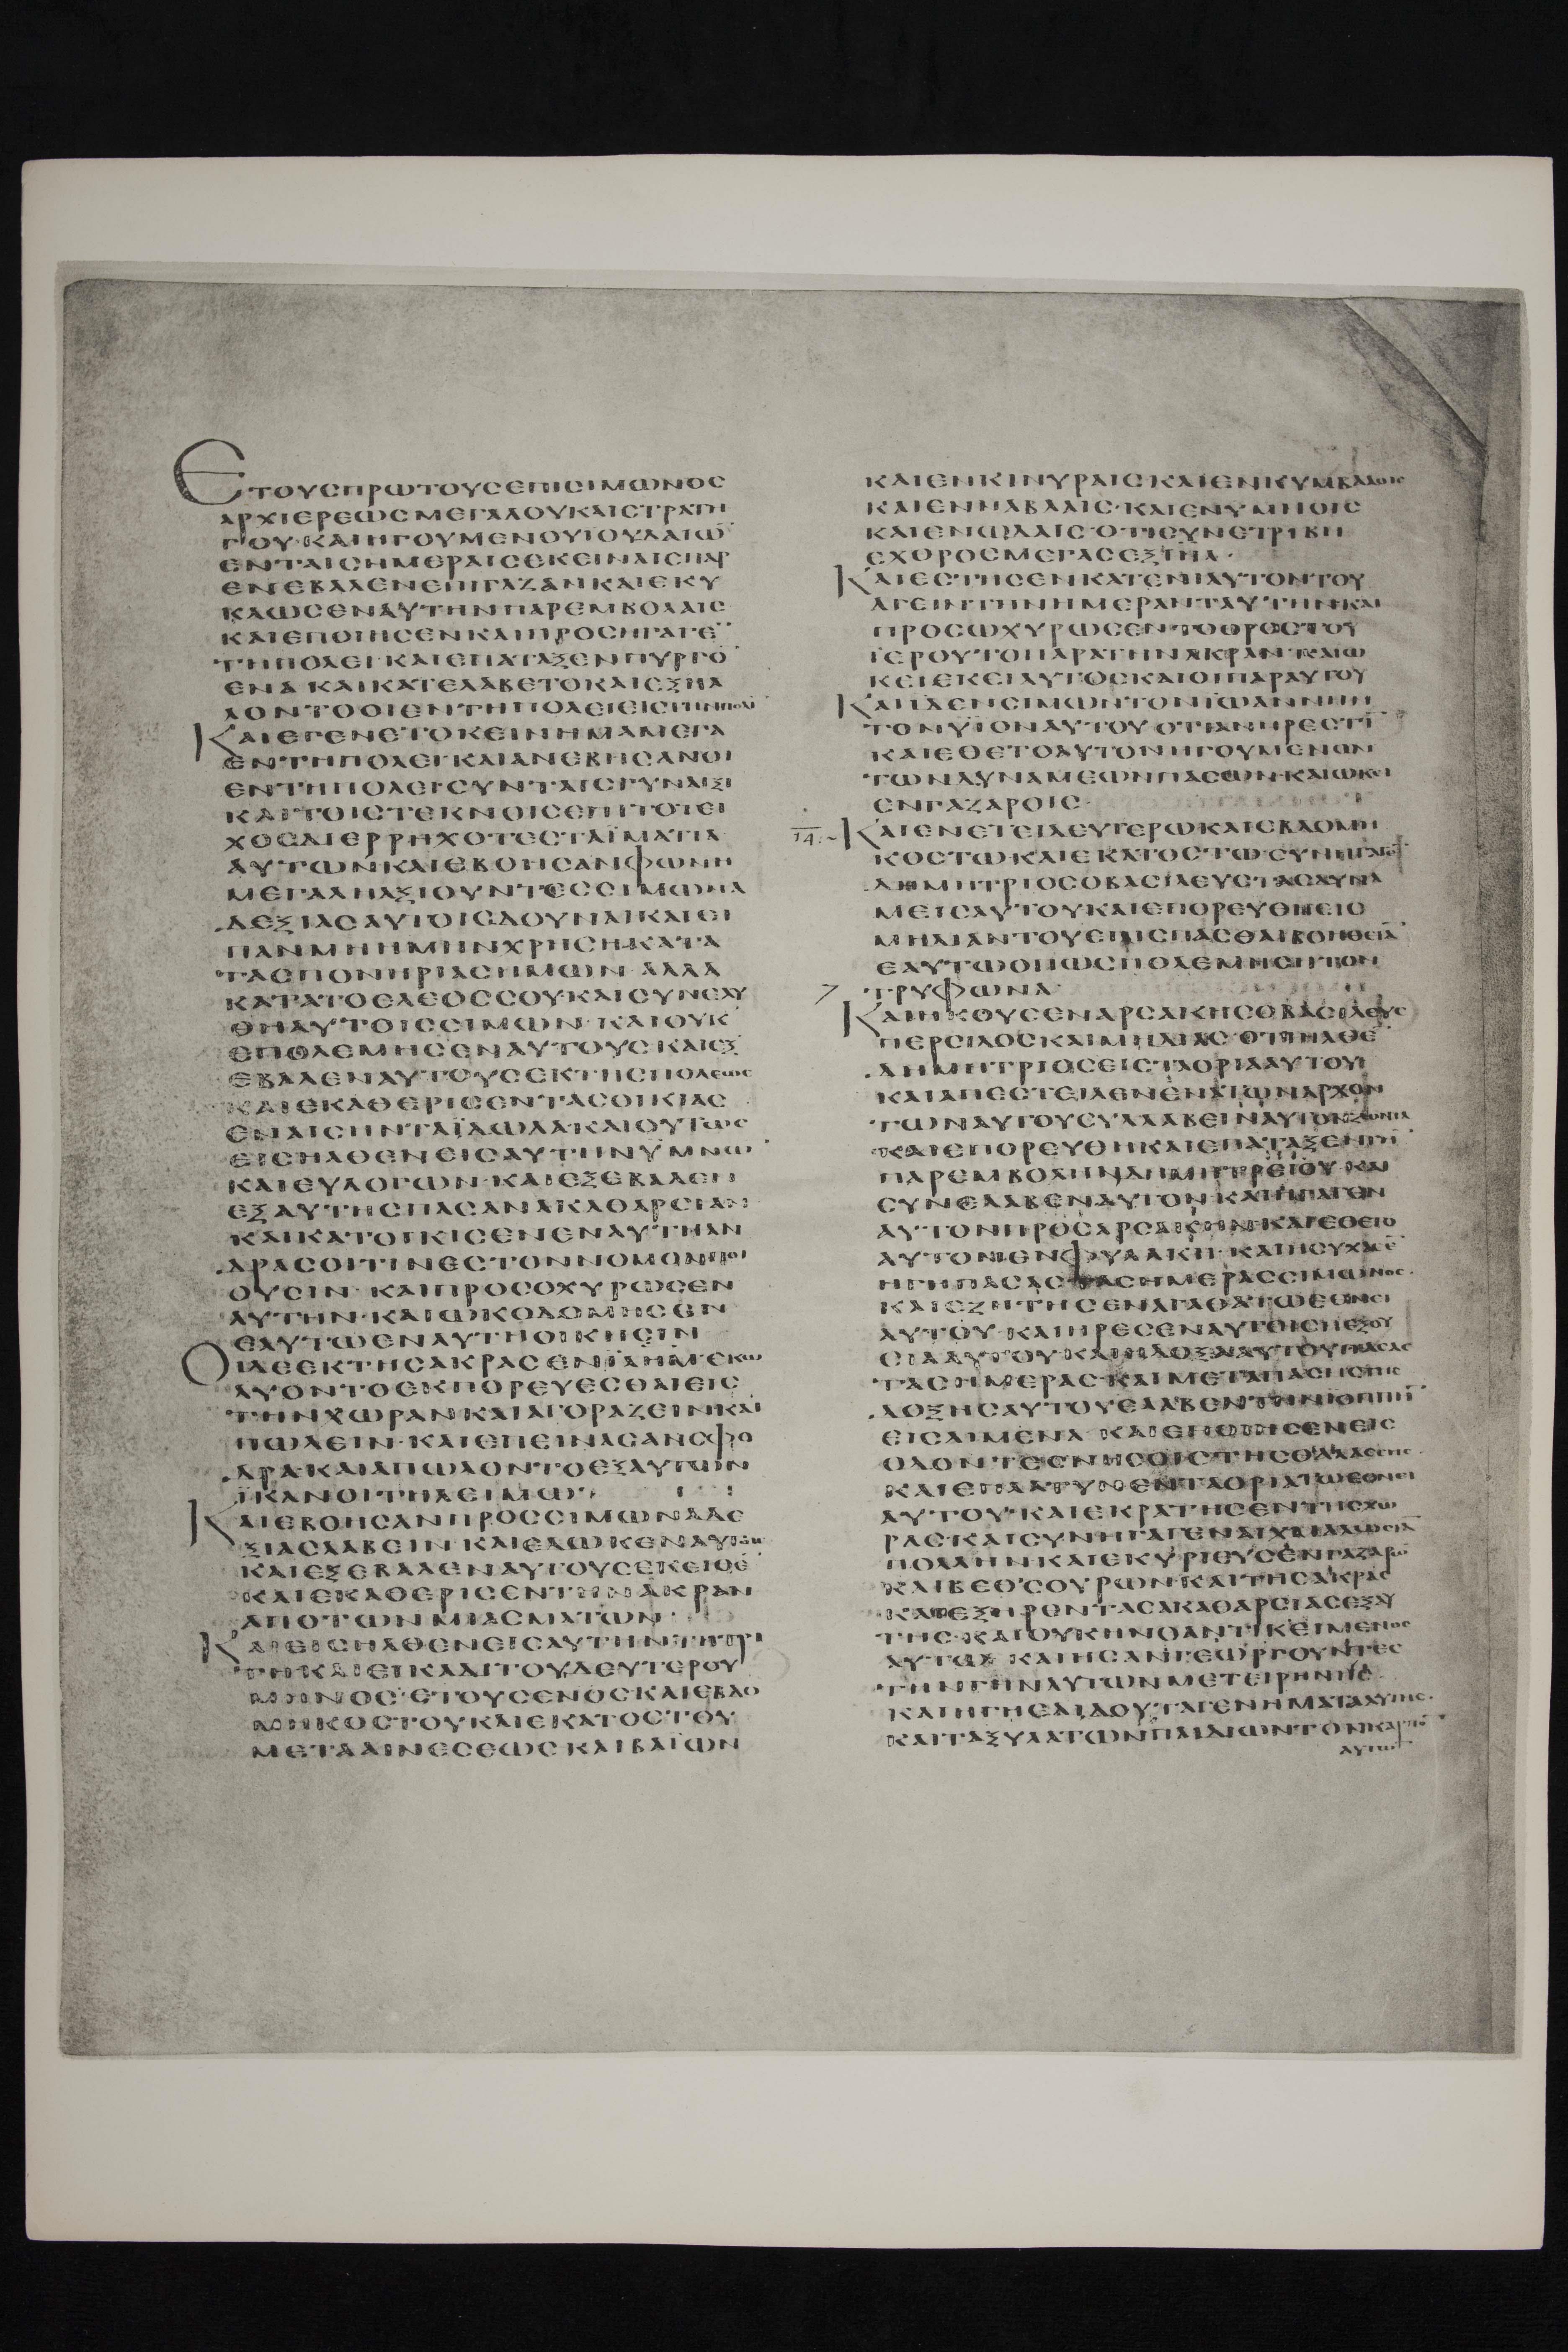 ΕΤΟΥϹΠΡΩΤΟΥϹΕΠΙϹΙΜΩΝΟϹ
ΑΡΧΙΕΡΕΩϹΜΕΓΑΛΟΥΚΑΙϹΤΡΑΤΗ
ΓΟΥ·ΚΑΙΗΓΟΥΜΕΝΟΥΙΟΥΔΑΙΩ¯
ΕΝΤΑΙϹΗΜΕΡΑΙϹΕΚΕΙΝΑΙϹΠΑΡ
ΕΝΕΒΑΛΕΝΕΠΙΓΑΖΑΝΚΑΙΕΚΥ
ΚΛΩϹΕΝΑΥΤΗΝΠΑΡΕΜΒΟΛΑΙϹ
ΚΑΙΕΠΟΙΗϹΕΝΚΑΙΠΡΟϹΗΓΑΓΕ¯
ΤΗΠΟΛΕΙ·ΚΑΙΕΠΑΤΑΞΕΝΠΥΡΓΟ¯
ΕΝΑ·ΚΑΙΚΑΤΕΛΑΒΕΤΟΚΑΙΕΞΗΛ
ΛΟΝΤΟΟΙΕΝΤΗΠΟΛΕΙΕΙϹΤΗΝΠΟΛΙ¯
ΚΑΙΕΓΕΝΕΤΟΚΕΙΝΗΜΑΜΕΓΑ
ΕΝΤΗΠΟΛΕΙ·ΚΑΙΑΝΕΒΗϹΑΝΟΙ
ΕΝΤΗΠΟΛΕΙϹΥΝΤΑΙϹΓΥΝΑΙΞΙ
ΚΑΙΤΟΙϹΤΕΚΝΟΙϹΕΠΙΤΟΤΕΙ
ΧΟϹΔΙΕΡΡΗΧΟΤΕϹΤΑΪΜΑΤΙΑ
ΑΥΤΩΝΚΑΙΕΒΟΗϹΑΝΦΩΝΗ
ΜΕΓΑΛΗΑΞΙΟΥΝΤΕϹϹΙΜΩΝΑ
ΔΕΞΙΑϹΑΥΤΟΙϹΔΟΥΝΑΙΚΑΙΕΙ
ΠΑΝΜΗΗΜΙΝΧΡΗϹΗΚΑΤΑ
ΤΑϹΠΟΝΗΡΙΑϹΗΜΩΝ·ΑΛΛΑ
ΚΑΤΑΤΟΕΛΕΟϹϹΟΥ·ΚΑΙϹΥΝΕΛΥ
ΘΗΑΥΤΟΙϹϹΙΜΩΝ·ΚΑΙΟΥΚ
ΕΠΟΛΕΜΗϹΕΝΑΥΤΟΥϹΚΑΙΕΞ
ΕΒΑΛΕΝΑΥΤΟΥϹΕΚΤΗϹΠΟΛΕΩϹ
ΚΑΙΕΚΑΘΕΡΙϹΕΝΤΑϹΟΙΚΙΑϹ
ΕΝΑΙϹΗΝΤΑΪΔΩΛΑ·ΚΑΙΟΥΤΩϹ
ΕΙϹΗΛΘΕΝΕΙϹΑΥΤΗΝΫΜΝΩ¯
ΚΑΙΕΥΛΟΓΩΝ·ΚΑΙΕΞΕΒΑΛΕΝ
ΕΞΑΥΤΗϹΠΑϹΑΝΑΚΑΘΑΡϹΙΑΝ
ΚΑΙΚΑΤΟΙΚΙϹΕΝΕΝΑΥΤΗΑΝ
ΔΡΑϹΟΙΤΙΝΕϹΤΟΝΝΟΜΟΝΠΟΙ
ΟΥϹΙΝ·ΚΑΙΠΡΟϹΟΧΥΡΩϹΕΝ
ΑΥΤΗΝ·ΚΑΙΩΚΟΔΟΜΗϹΕΝ
ΕΑΥΤΩΕΝΑΥΤΗΟΙΚΗϹΙΝ
ΟΙΔΕΕΚΤΗϹΑΚΡΑϹΕΝΪΛΗΜΕΚΩ
ΛΥΟΝΤΟΕΚΠΟΡΕΥΕϹΘΑΙΕΙϹ
ΤΗΝΧΩΡΑΝΚΑΙΑΓΟΡΑΖΕΙΝΚΑΙ
ΠΩΛΕΙΝ·ΚΑΙΕΠΕΙΝΑϹΑΝϹΦΟ
ΔΡΑ·ΚΑΙΑΠΩΛΟΝΤΟΕΞΑΥΤΩΝ
ΪΚΑΝΟΙΤΗΛΕΙΜΩ·
ΚΑΙΕΒΟΗϹΑΝΠΡΟϹϹΙΜΩΝΑΔΕ
ΞΙΑϹΛΑΒΕΙΝ·ΚΑΙΕΔΩΚΕΝΑΥΤΟΙϹ
ΚΑΙΕΞΕΒΑΛΕΝΑΥΤΟΥϹΕΚΕΙΘΕ¯
ΚΑΙΕΚΑΘΕΡΙϹΕΝΤΗΝΑΚΡΑΝ
ΑΠΟΤΩΝΜΙΑϹΜΑΤΩΝ·
ΚΑΙΕΙϹΗΛΘΕΝΕΙϹΑΥΤΗΝΤΗΤΡΙ
ΤΗΚΑΙΕΙΚΑΔΙΤΟΥΔΕΥΤΕΡΟΥ
ΜΗΝΟϹ·ΕΤΟΥϹΕΝΟϹΚΑΙΕΒΔΟ
ΜΗΚΟϹΤΟΥΚΑΙΕΚΑΤΟϹΤΟΥ
ΜΕΤΑΑΙΝΕϹΕΩϹΚΑΙΒΑΪΩΝ
ΚΑΙΕΝΚΙΝΥΡΑΙϹΚΑΙΕΝΚΥΜΒΑΛΟΙϹ
ΚΑΙΕΝΝΑΒΛΑΙϹ·ΚΑΙΕΝΥΜΝΟΙϹ
ΚΑΙΕΝΩΔΑΙϹ·ΟΤΙϹΥΝΕΤΡΙΒΗ
ΕΧΘΡΟϹΜΕΓΑϹΕΞΙΗΛ·
ΚΑΙΕϹΤΗϹΕΝΚΑΤΕΝΙΑΥΤΟΝΤΟΥ
ΑΓΕΙΝΤΗΝΗΜΕΡΑΝΤΑΥΤΗΝΚΑΙ
ΠΡΟϹΩΧΥΡΩϹΕΝΤΟΟΡΟϹΤΟΥ
ΪΕΡΟΥΤΟΠΑΡΑΤΗΝΑΚΡΑΝ·ΚΑΙΩ
ΚΕΙΕΚΕΙΑΥΤΟϹΚΑΙΟΙΠΑΡΑΥΤΟΥ
ΚΑΙΪΔΕΝϹΙΜΩΝΤΟΝΪΩΑΝΝΗΝ
ΤΟΝΥΪΟΝΑΥΤΟΥΟΤΙΑΝΗΡΕϹΤΙ¯
ΚΑΙΕΘΕΤΟΑΥΤΟΝΗΓΟΥΜΕΝΟΝ
ΤΩΝΔΥΝΑΜΕΩΝΠΑϹΩΝ·ΚΑΙΩΚΕΙ
ΕΝΓΑΖΑΡΟΙϹ·
14. ΚΑΙΕΝΕΤΕΙΔΕΥΤΕΡΩΚΑΙΕΒΔΟΜΗ
ΚΟϹΤΩΚΑΙΕΚΑΤΟϹΤΩ·ϹΥΝΗΓΑΓΕ¯
ΔΗΜΗΤΡΙΟϹΟΒΑϹΙΛΕΥϹΤΑϹΔΥΝΑ
ΜΕΙϹΑΥΤΟΥΚΑΙΕΠΟΡΕΥΘΗΕΙϹ
ΜΗΔΙΑΝΤΟΥΕΠΙϹΠΑϹΘΑΙΒΟΗΘΕΙΑ¯
ΕΑΥΤΩΟΠΩϹΠΟΛΕΜΗϹΗΤΟΝ
ΤΡΥΦΩΝΑ·
ΚΑΙΗΚΟΥϹΕΝΑΡϹΑΚΗϹΟΒΑϹΙΛΕΥϹ
ΠΕΡϹΙΔΟϹΚΑΙΜΗΔΙΑϹ·ΟΤΙΗΛΘΕ¯
ΔΗΜΗΤΡΙΟϹΕΙϹΤΑΟΡΙΑΑΥΤΟΥ
ΚΑΙΑΠΕϹΤΕΙΛΕΝΕΝΑΤΩΝΑΡΧΟΝ
ΤΩΝΑΥΤΟΥϹΥΛΛΑΒΕΙΝΑΥΤΟΝΖΩΝΤΑ
ΚΑΙΕΠΟΡΕΥΘΗΚΑΙΕΠΑΤΑΞΕΝΤΗ¯
ΠΑΡΕΜΒΟΛΗΝΔΗΜΗΤΡΙΟΥ·ΚΑΙ
ϹΥΝΕΛΑΒΕΝΑΥΤΟΝΚΑΙΗΓΑΓΕΝ
ΑΥΤΟΝΠΡΟϹΑΡϹΑΚΗΝΚΑΙΕΘΕΤΟ
ΑΥΤΟΝΕΝΦΥΛΑΚΗ·ΚΑΙΗϹΥΧΑϹΕ¯
ΗΓΗΠΑϹΑϹΤΑϹΗΜΕΡΑϹϹΙΜΩΝΟϹ·
ΚΑΙΕΖΗΤΗϹΕΝΑΓΑΘΑΤΩΕΘΝΕΙ
ΑΥΤΟΥ·ΚΑΙΗΡΕϹΕΝΑΥΤΟΙϹΗΕΞΟΥ
ϹΙΑΑΥΤΟΥΚΑΙΗΔΟΞΑΑΥΤΟΥΠΑϹΑϹ
ΤΑϹΗΜΕΡΑϹ·ΚΑΙΜΕΤΑΠΑϹΗϹΤΗϹ
ΔΟΞΗϹΑΥΤΟΥΕΛΑΒΕΝΤΗΝΙΟΠΠΗ¯
ΕΙϹΛΙΜΕΝΑ·ΚΑΙΕΠΟΙΗϹΕΝΕΙϹ
ΟΔΟΝΤΕΕΝΗϹΟΙϹΤΗϹΘΑΛΑϹϹΗϹ·
ΚΑΙΕΠΛΑΤΥΝΕΝΤΑΟΡΙΑΤΩΕΘΝΕΙ
ΑΥΤΟΥ·ΚΑΙΕΚΡΑΤΗϹΕΝΤΗϹΧΩ
ΡΑϹ·ΚΑΙϹΥΝΗΓΑΓΕΝΑΙΧΜΑΛΩϹΙΑ¯
ΠΟΛΛΗΝΚΑΙΕΚΥΡΙΕΥϹΕΝΓΑΖΑΡΩ¯
ΚΑΙΒΕΘϹΟΥΡΩΝ·ΚΑΙΤΗϹΑΚΡΑϹ
ΚΑΙΕΞΗΡΕΝΤΑϹΑΚΑΘΑΡϹΙΑϹΕΞΑΥ
ΤΗϹ·ΚΑΙΟΥΚΗΝΟΑΝΤΙΚΕΙΜΕΝΟϹ
ΑΥΤΩ·ΚΑΙΗϹΑΝΓΕΩΡΓΟΥΝΤΕϹ
ΤΗΝΓΗΝΑΥΤΩΝΜΕΤΕΙΡΗΝΗϹ
ΚΑΙΗΓΗΕΔΙΔΟΥΤΑΓΕΝΗΜΑΤΑΑΥΤΗϹ·
ΚΑΙΤΑΞΥΛΑΤΩΝΠΑΙΔΙΩΝΤΟΝΚΑΡΠΟ¯
ΑΥΤΩ¯